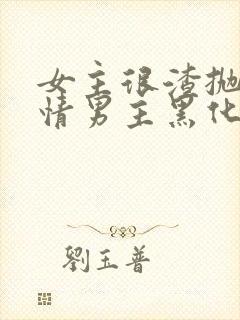 女主很渣抛
情男主黑化
劉玉普